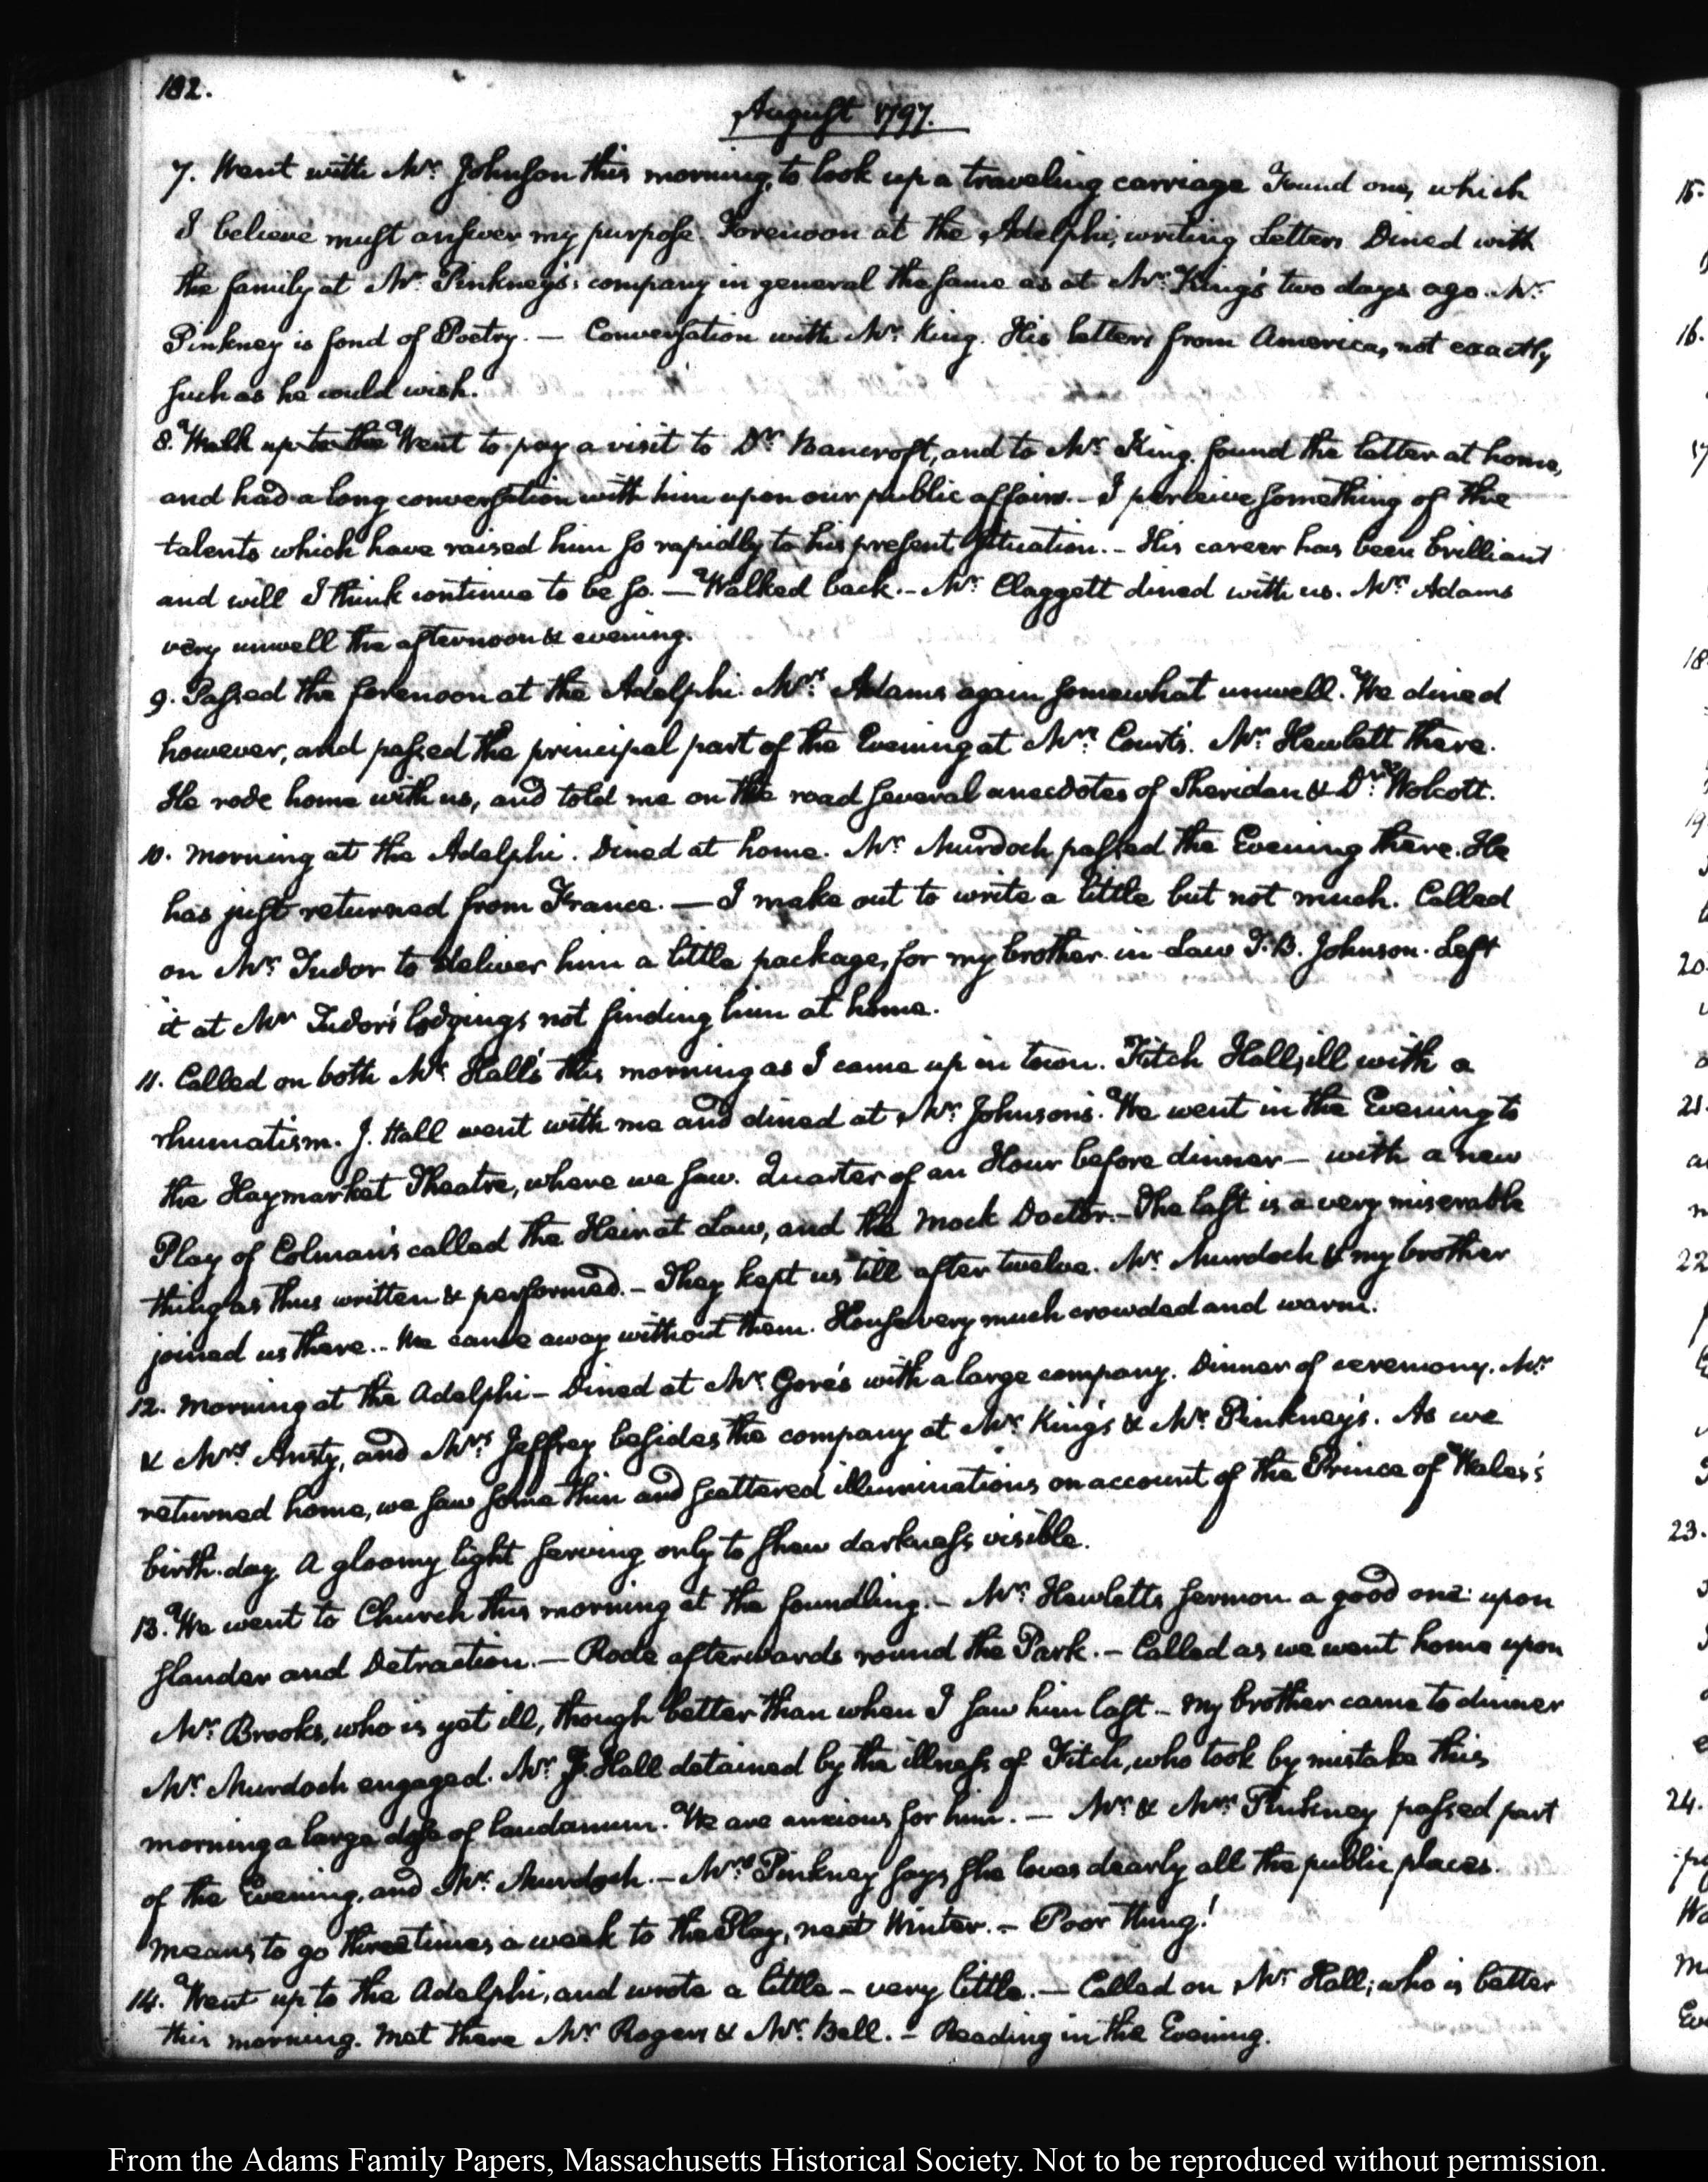 182.
August 1797.
7. Went with Mr. Johnson this morning, to look up a traveling carriage Found one, which
I believe must answer my purpose. Forenoon at the Adelphi, writing Letters Dined with
the family at Mr. Pinkney's: company in general the same as at Mr. King's two days ago. Mr.
Pinkney is fond of Poetry. — Conversation with Mr. King. His letters from America, not exactly
such as he could wish.
8. Walk up to the Went to pay a visit to Dr. Bancroft, and to Mr. King. found the latter at home,
and had a long conversation with him upon our public affairs. — I perceive something of the
talents which have raised him so rapidly to his present situation. — His career has been brilliant
and will I think continue to be so. — Walked back. — Mr. Claggett dined with us. Mrs. Adams
very unwell the afternoon & evening.
9. Passed the forenoon at the Adelphi. Mrs. Adams again somewhat unwell. We dined
however, and passed the principal part of the Evening at Mrs. Court's. Mr. Hewlett there.
He rode home with us, and told me on the road several anecdotes of Sheridan & Dr. Wolcott.
10. Morning at the Adelphi. Dined at home. Mr. Murdoch passed the Evening there. He
has just returned from France. — I make out to write a little but not much. Called
on Mr. Tudor to deliver him a little package, for my brother-in-Law T. B. Johnson. Left
it at Mr. Tudor's lodgings not finding him at home.
11. Called on both Mr. Hall's this morning as I came up in town. Fitch Hall, ill with a
rhumatism. J. Hall went with me and dined at Mr. Johnson's. We went in the Evening to
the Haymarket Theatre, where we saw. Quarter of an Hour before dinner — with a new
Play of Colman's called the Heir at Law, and the Mock Doctor. — The last is a very miserable
thing as thus written & performed. — They kept us till after twelve. Mr. Murdoch & my brother
joined us there. . We came away without them. House very much crowded and warm.
12. Morning at the Adelphi — Dined at Mr. Gore's with a large company. Dinner of ceremony. Mr.
& Mrs. Ansty, and Mrs. Jeffrey besides the company at Mr. King's & Mr. Pinkney's. As we
returned home, we saw some thin and scattered illuminations on account of the Prince of Wales's
birth-day. A gloomy light serving only to shew darkness visible.
13. We went to Church this morning at the foundling. — Mr. Hewletts sermon a good one: upon
slander and Detraction. — Rode afterwards round the Park. — Called as we went home upon
Mr. Brooks, who is yet ill, though better than when I saw him last — My brother came to dinner
Mr. Murdoch engaged. Mr. J. Hall detained by the illness of Fitch, who took by mistake this
morning a large dose of laudanum. We are anxious for him. — Mr. & Mrs. Pinkney passed part
of the Evening, and Mr. Murdoch. — Mrs. Pinkney says she loves dearly all the public places.
Means to go three times a week to the Play, next Winter. — Poor thing!
14. Went up to the Adelphi, and wrote a little — very little. — Called on Mr. Hall; who is better
this morning. Met there Mr. Rogers & Mr. Bell. — Reading in the Evening.
15.
16.
17
18
19
20
21.
22
23.
24.
From the Adams Family Papers, Massachusetts Historical Society. Not to be reproduced without permission.